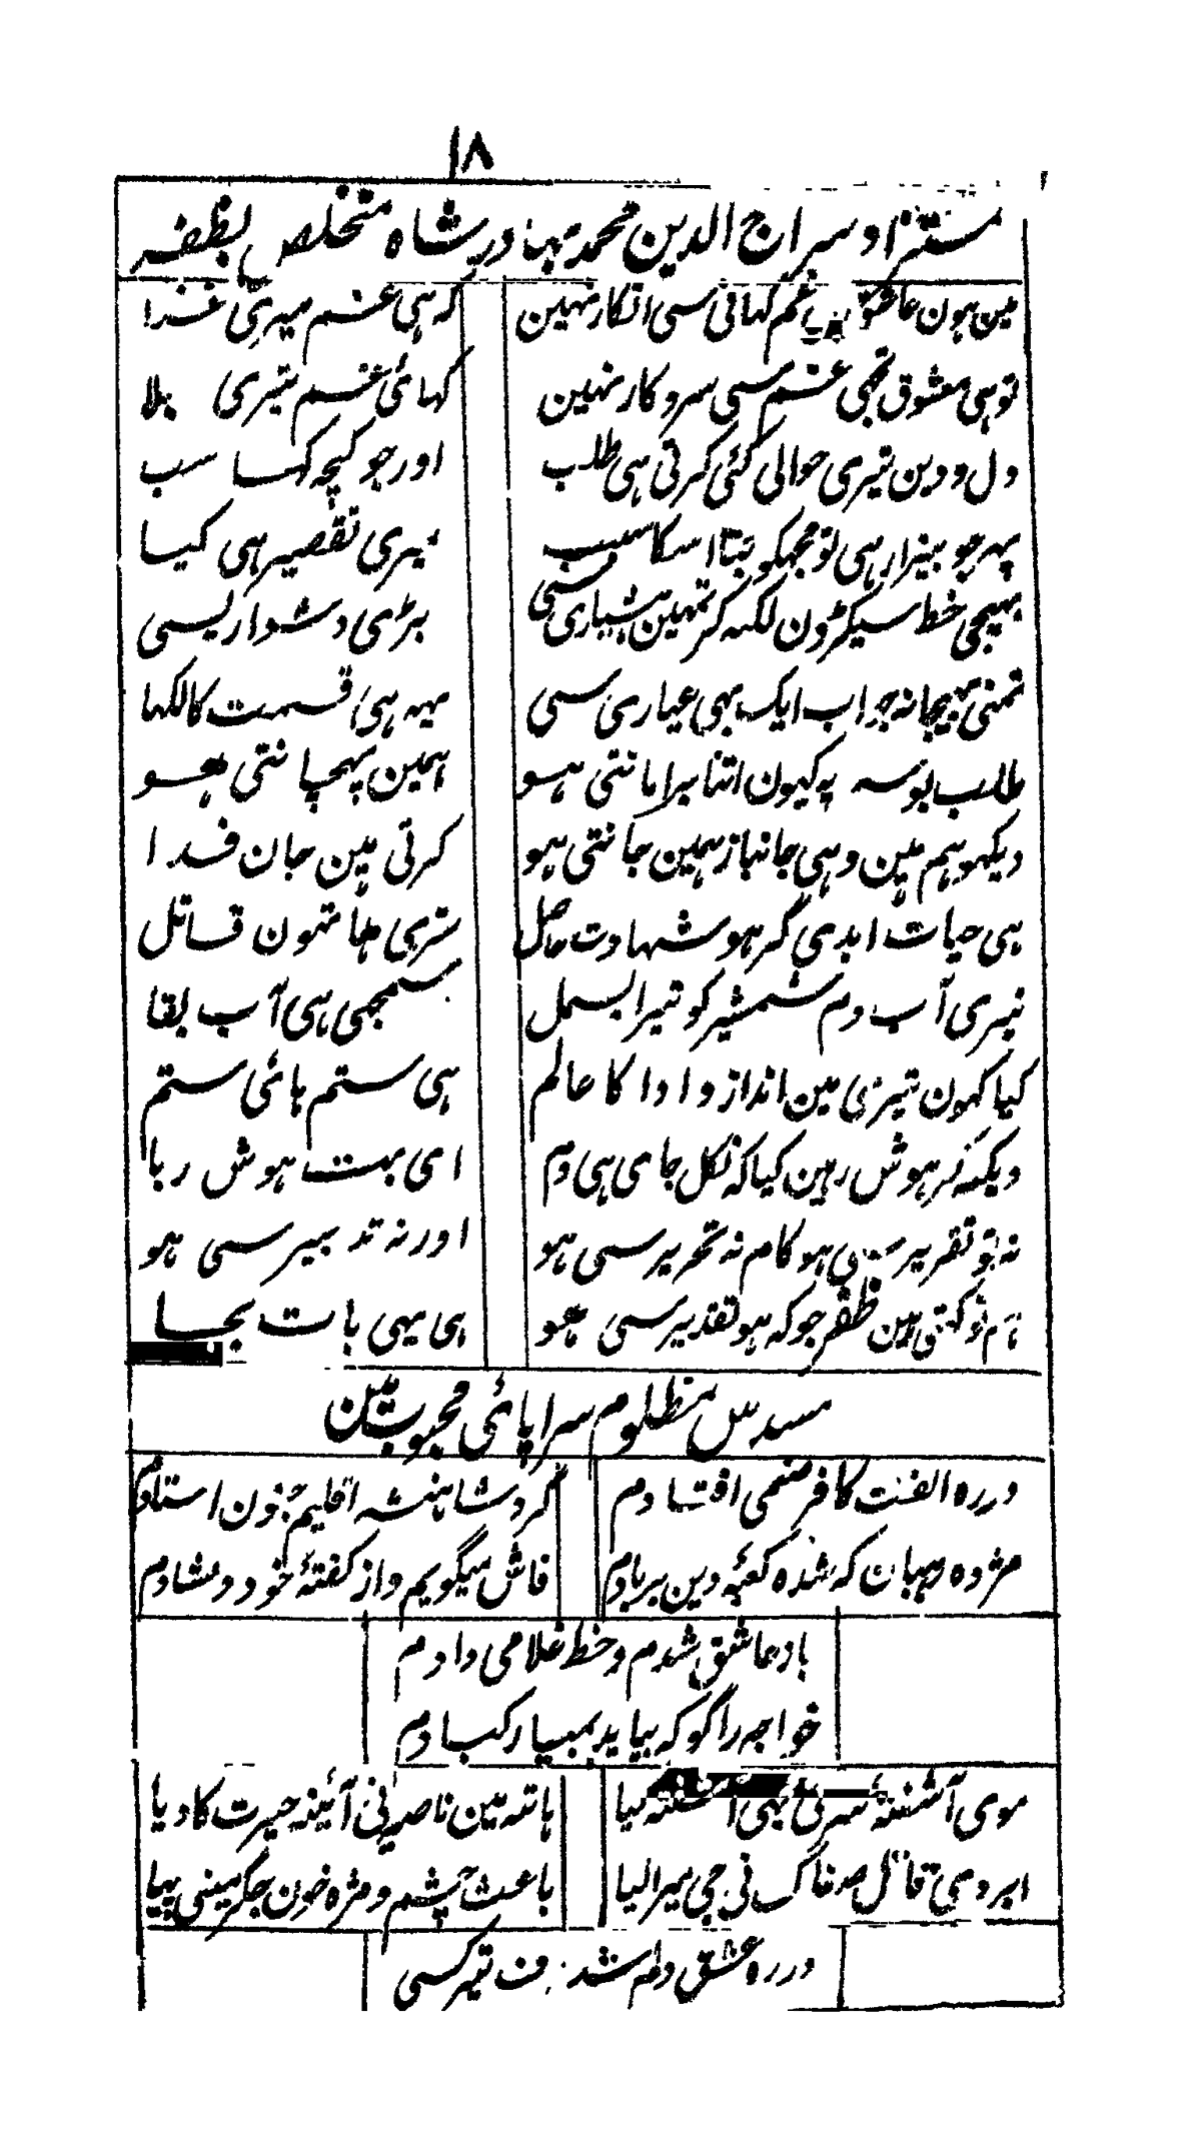 ۱۸
مستزاد سراج الدین محمد بہادر شاہ متخلص بظفر
مین ہون عاشق غم کہانی سی انکار نہین کہ ہی غم میری غذا
تو ہی معشوق تجھی غم سی سروکار نہین کہائی غم تیری بلا
دل و دین تیری حوالی کئی کرتی ہی طلب اور جو کچہ کہا سب
پہر جو بیزار ہی تو مجہکو بتا اسکا سبب میری تقصیر ہی کیا
بہیجی خط سیکڑون لکہہ کر تمہین ہشیاری سی بڑی دشواریسی
تمنی بہیجا نہ جواب ایک بہی عیاری سی یہہ ہی قسمت کا لکہا
طلب بوسہ پہ کیون اتنا برا مانتی ہو ہمین پہچانتی ہو
دیکہو ہم ہین وہی جانباز ہمین جانتی ہو کرتی ہین جان فدا
ہی حیات ابدی گر ہو شہادت حاصل تری ہاتہون قاتل
تیری آب دم شمشیر کو تیرا بسمل سمجھی ہی آب بقا
کیا کہون تیری مین انداز و ادا کا عالم ہی ستم ہائی ستم
دیکہہ کر ہوش رہین کیا کہ نکل جای ہی دم ای بت ہوش ربا
نہ تو تقریر سی ہو کام نہ تحریر سی ہو اور نہ تدبیر سی ہو
ہم تو کہتی ہین ظفر جو کہ ہو تقدیر سی ہو ہی یہی بات بجا
مسدس منظلوم سراپائی محبوب مین
در رہ الفت کافر صنمی افتادم کرد شاہنشہ اقلیم جنون استادم
مژدہ رہبان کہ شدہ کعبۂ دین بربادم فاش میگویم و از گفتۂ خود دلشادم
باد عاشق شدم و خط غلامی دادم
خواجہ را گو کہ بیاید بمبارکبادم
موی آشفتہ سری نی بہی آشفتہ کیا ہاتہہ مین ناصیہ نی آئینہ حیرت کا دیا
ابروی قاتل سفاک نی جی میرا لیا باعث چشم و مژہ خون جگر مینی پیا
در رہ عشق دلم شد ہدف تیر کسی